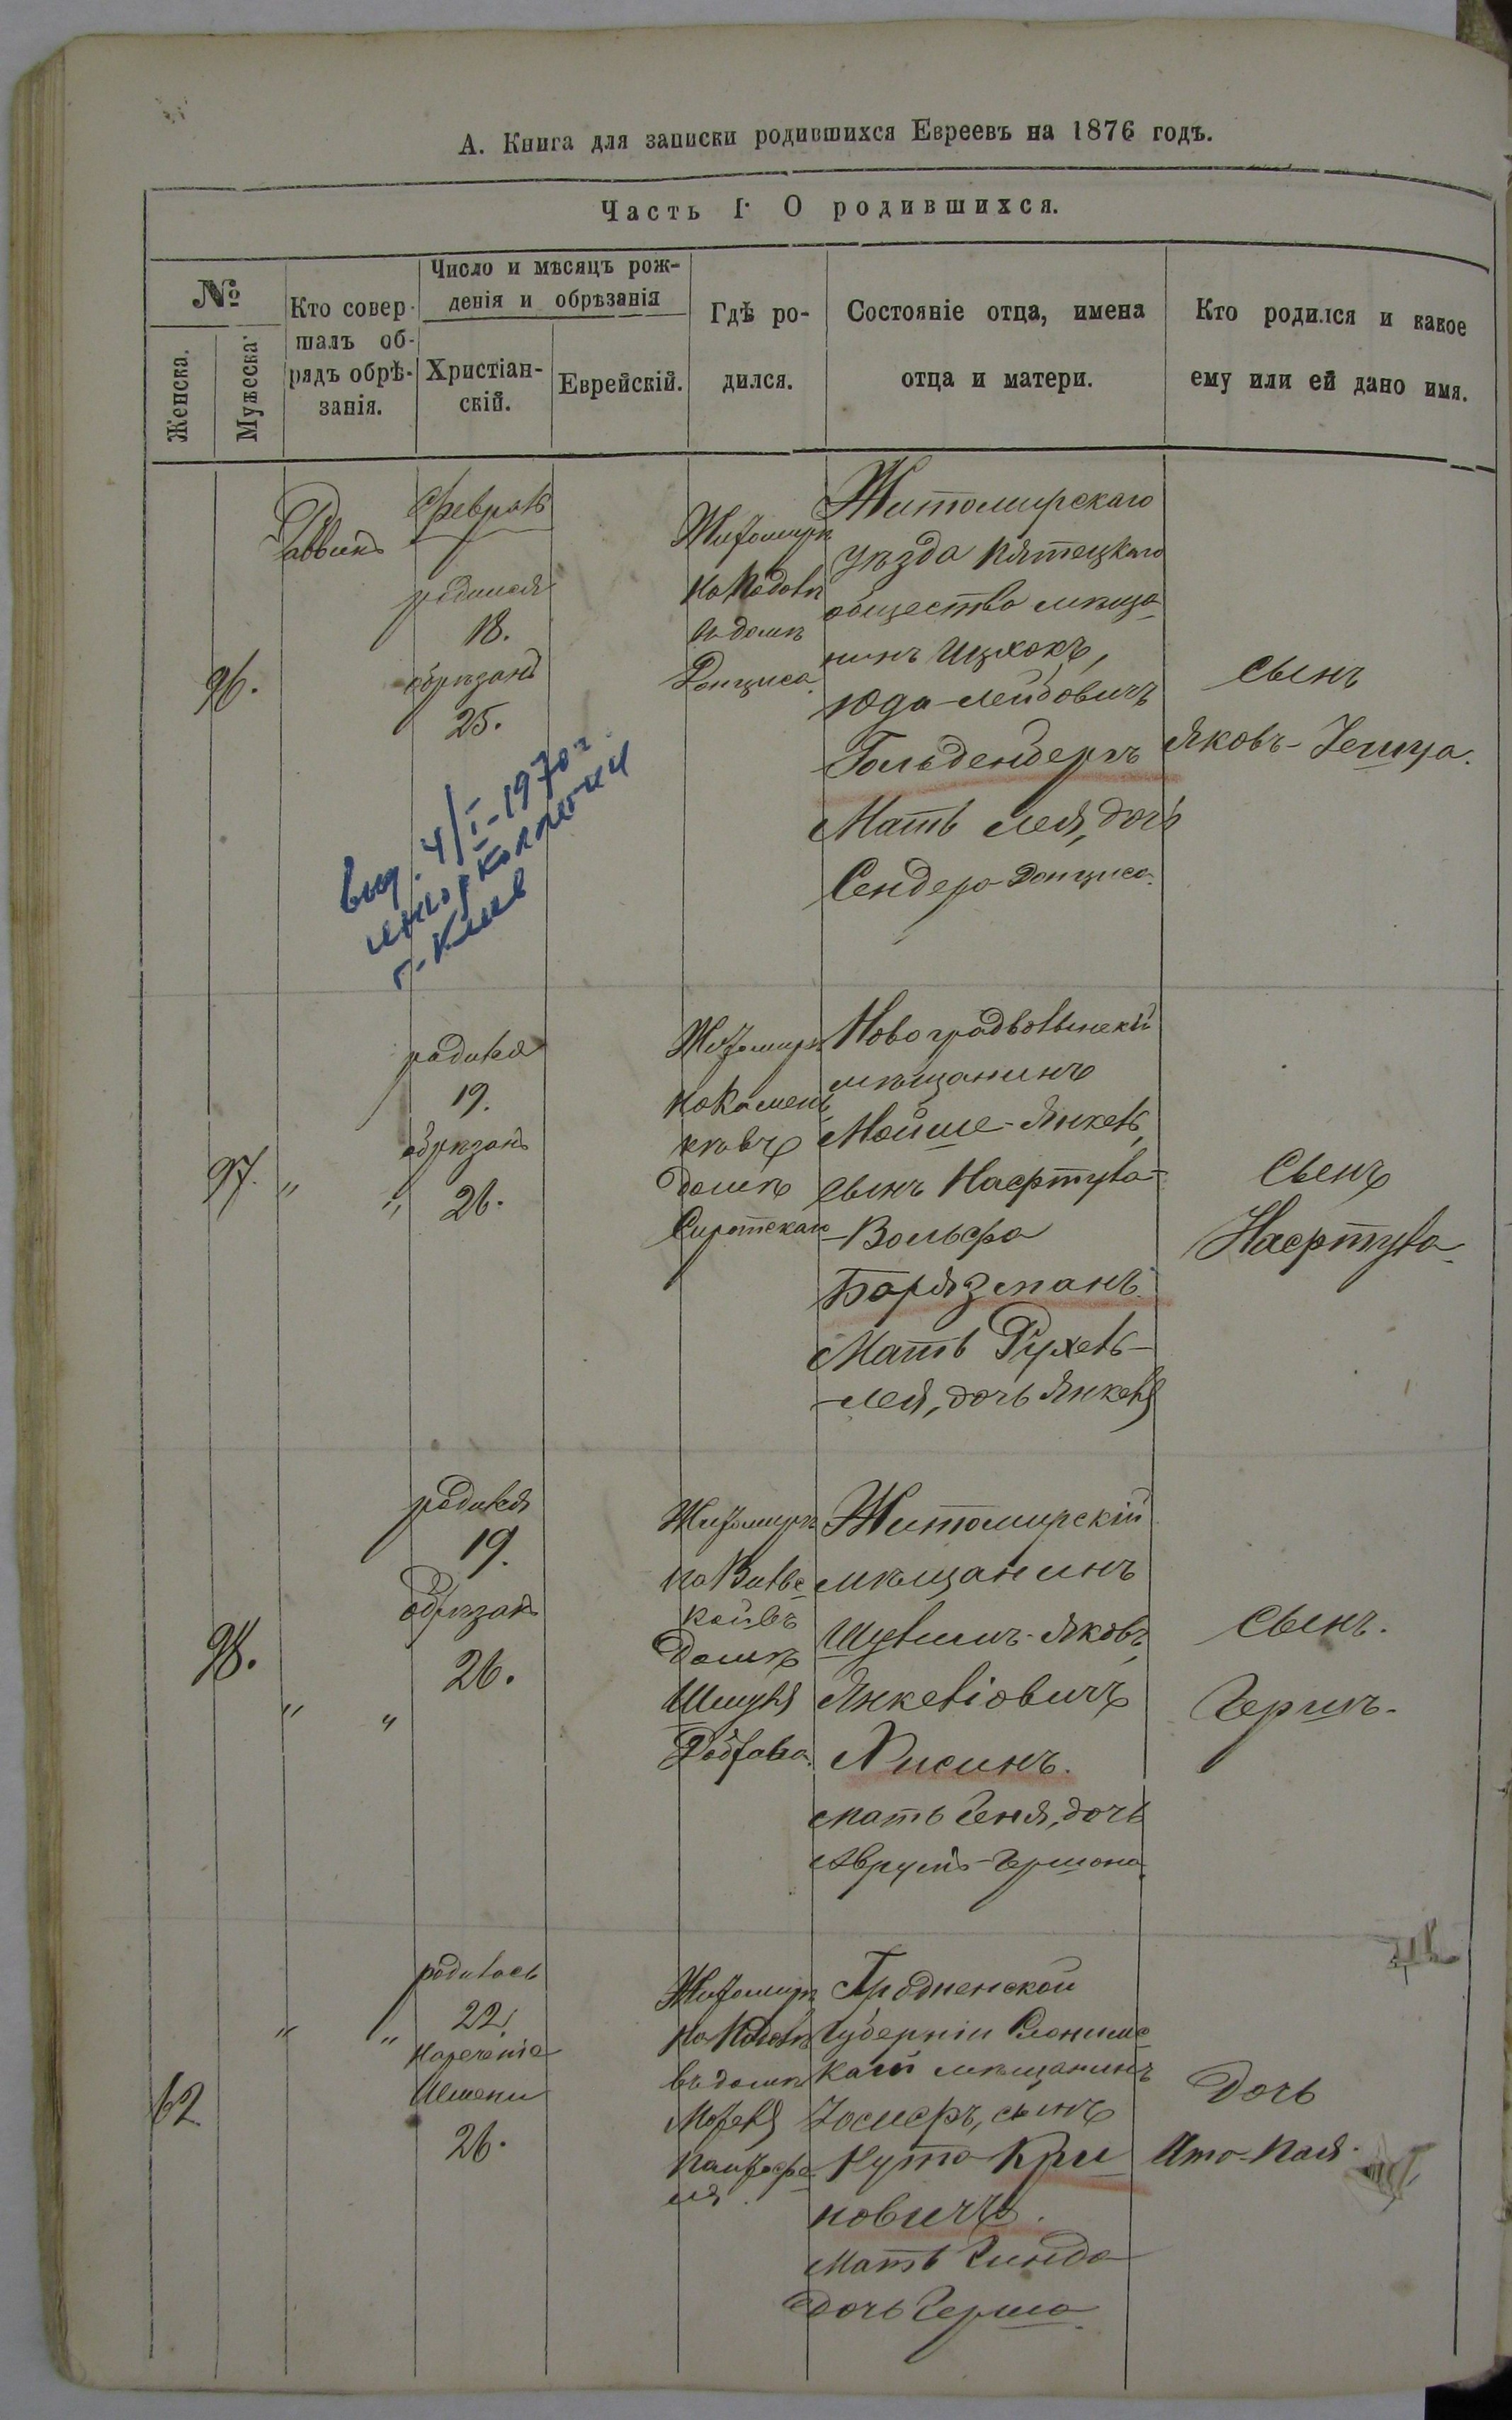 А. Книга для записки родившихся Евреевъ на 1876 годъ.
Часть I. О родившихся.
№
Женска.
Мужеска.
Кто совер-
шалъ об-
рядъ обрѣ-
занія.
Число и мѣсяцъ рож-
денія и обрѣзанія
Христіан-
скій.
Еврейскій.
Гдѣ ро-
дился.
Состояніе отца, имена
отца и матери.
Кто родился и какое
ему или ей дано имя.
96.
Раввинъ
Февраль
родился
18.
обрѣзанъ
25.
Житомирѣ
на Подолѣ
въ домѣ
Донциса.
Житомирскаго
уѣзда Пятецкаго
общество мѣща-
нинъ Ицхокъ,
Юда-Лейбовичъ
Гольденберъ
Мать Лея, дочь
Сендера Донциса.
сынъ
Яковъ-Іешуа.
4/I-1970г.
г. Киев
97.
" "
родился
19.
обрѣзанъ
26.
Житомирѣ
домѣ
Сиротскаго
Новоградволынскій
мѣщанинъ
Мойше-Янкель,
сынъ Нафтула-
-Вольфа
Борязманъ.
Мать Рухель-
-Лея, дочь Янкеля
Сынъ
Нафтула.
98.
" "
родился
19.
обрѣзанъ
26.
Житомирѣ
на Вильс
кой въ
Домѣ
Шмуля
Житомирскій
мѣщанинъ
Шулимъ-Яковъ,
Янкеліовичъ
Хисинъ.
мать Геня, дочь
Аврумъ-Гершона.
сынъ.
Гершъ.
62
" "
родилась
22.
Нареченіе
Имени
26.
Житомирѣ
на Подолѣ
въ домѣ
Гродненской
Губерніи Слонимс
кай мѣщанинъ
Іосифъ, сынъ
Нута Кри
новичъ.
Мать Гинда
дочь Герша.
Дочь
Ита-Пая.